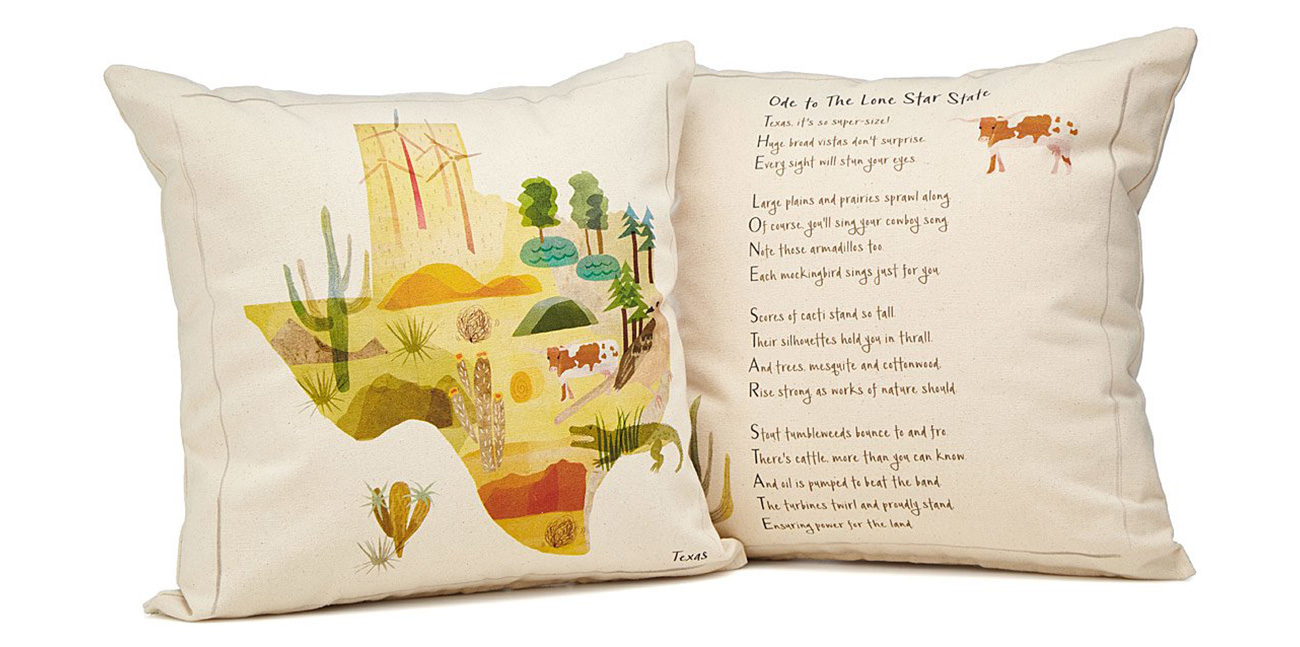 Ode to The Lone Star State
Texas, it's so super-size!
Huge broad vistas don't surprise.
Every sight will stun your eyes.
Large plains and prairies sprawl along.
Of course, you'll sing your cowboy song.
Note those armadillos too.
Each mockingbird sings just for you.
Scores of cacti stand so tall.
Their silhouettes hold you in thrall.
And trees, mesquite and cottonwood,
Rise strong as works of nature should.
Stout tumbleweeds bounce to and fro.
There's cattle, more than you can know.
And oil is pumped to beat the band.
The turbines twirl and proudly stand
Ensuring power for the land.
Texas